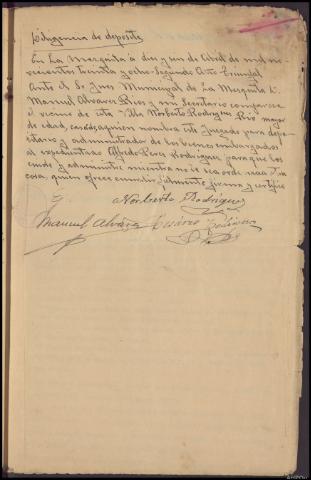 Diligencia de deposito
En La Mezquita a dos de Abril de mil no-
vecientos treinta y ocho = Segundo Año Triunfal
Ante el Sr Juez Municipal de La Mezquita D.
Manuel Alvarez Rios y mi Secretario comparece
el vecino de esta Villa Norberto Rodriguez Rio mayor
de edad, casado, a quien nombra este Juzgado para depo-
sitario y administrador de los bienes embargados
al expedientado Alfredo Perez Rodriguez para que los
cuide y administre mientras no se acorde nada otra
cosa, quien ofrece cumplir fielmente firma y certifico
Norberto Rodriguez
Manuel Alvarez Cesáreo